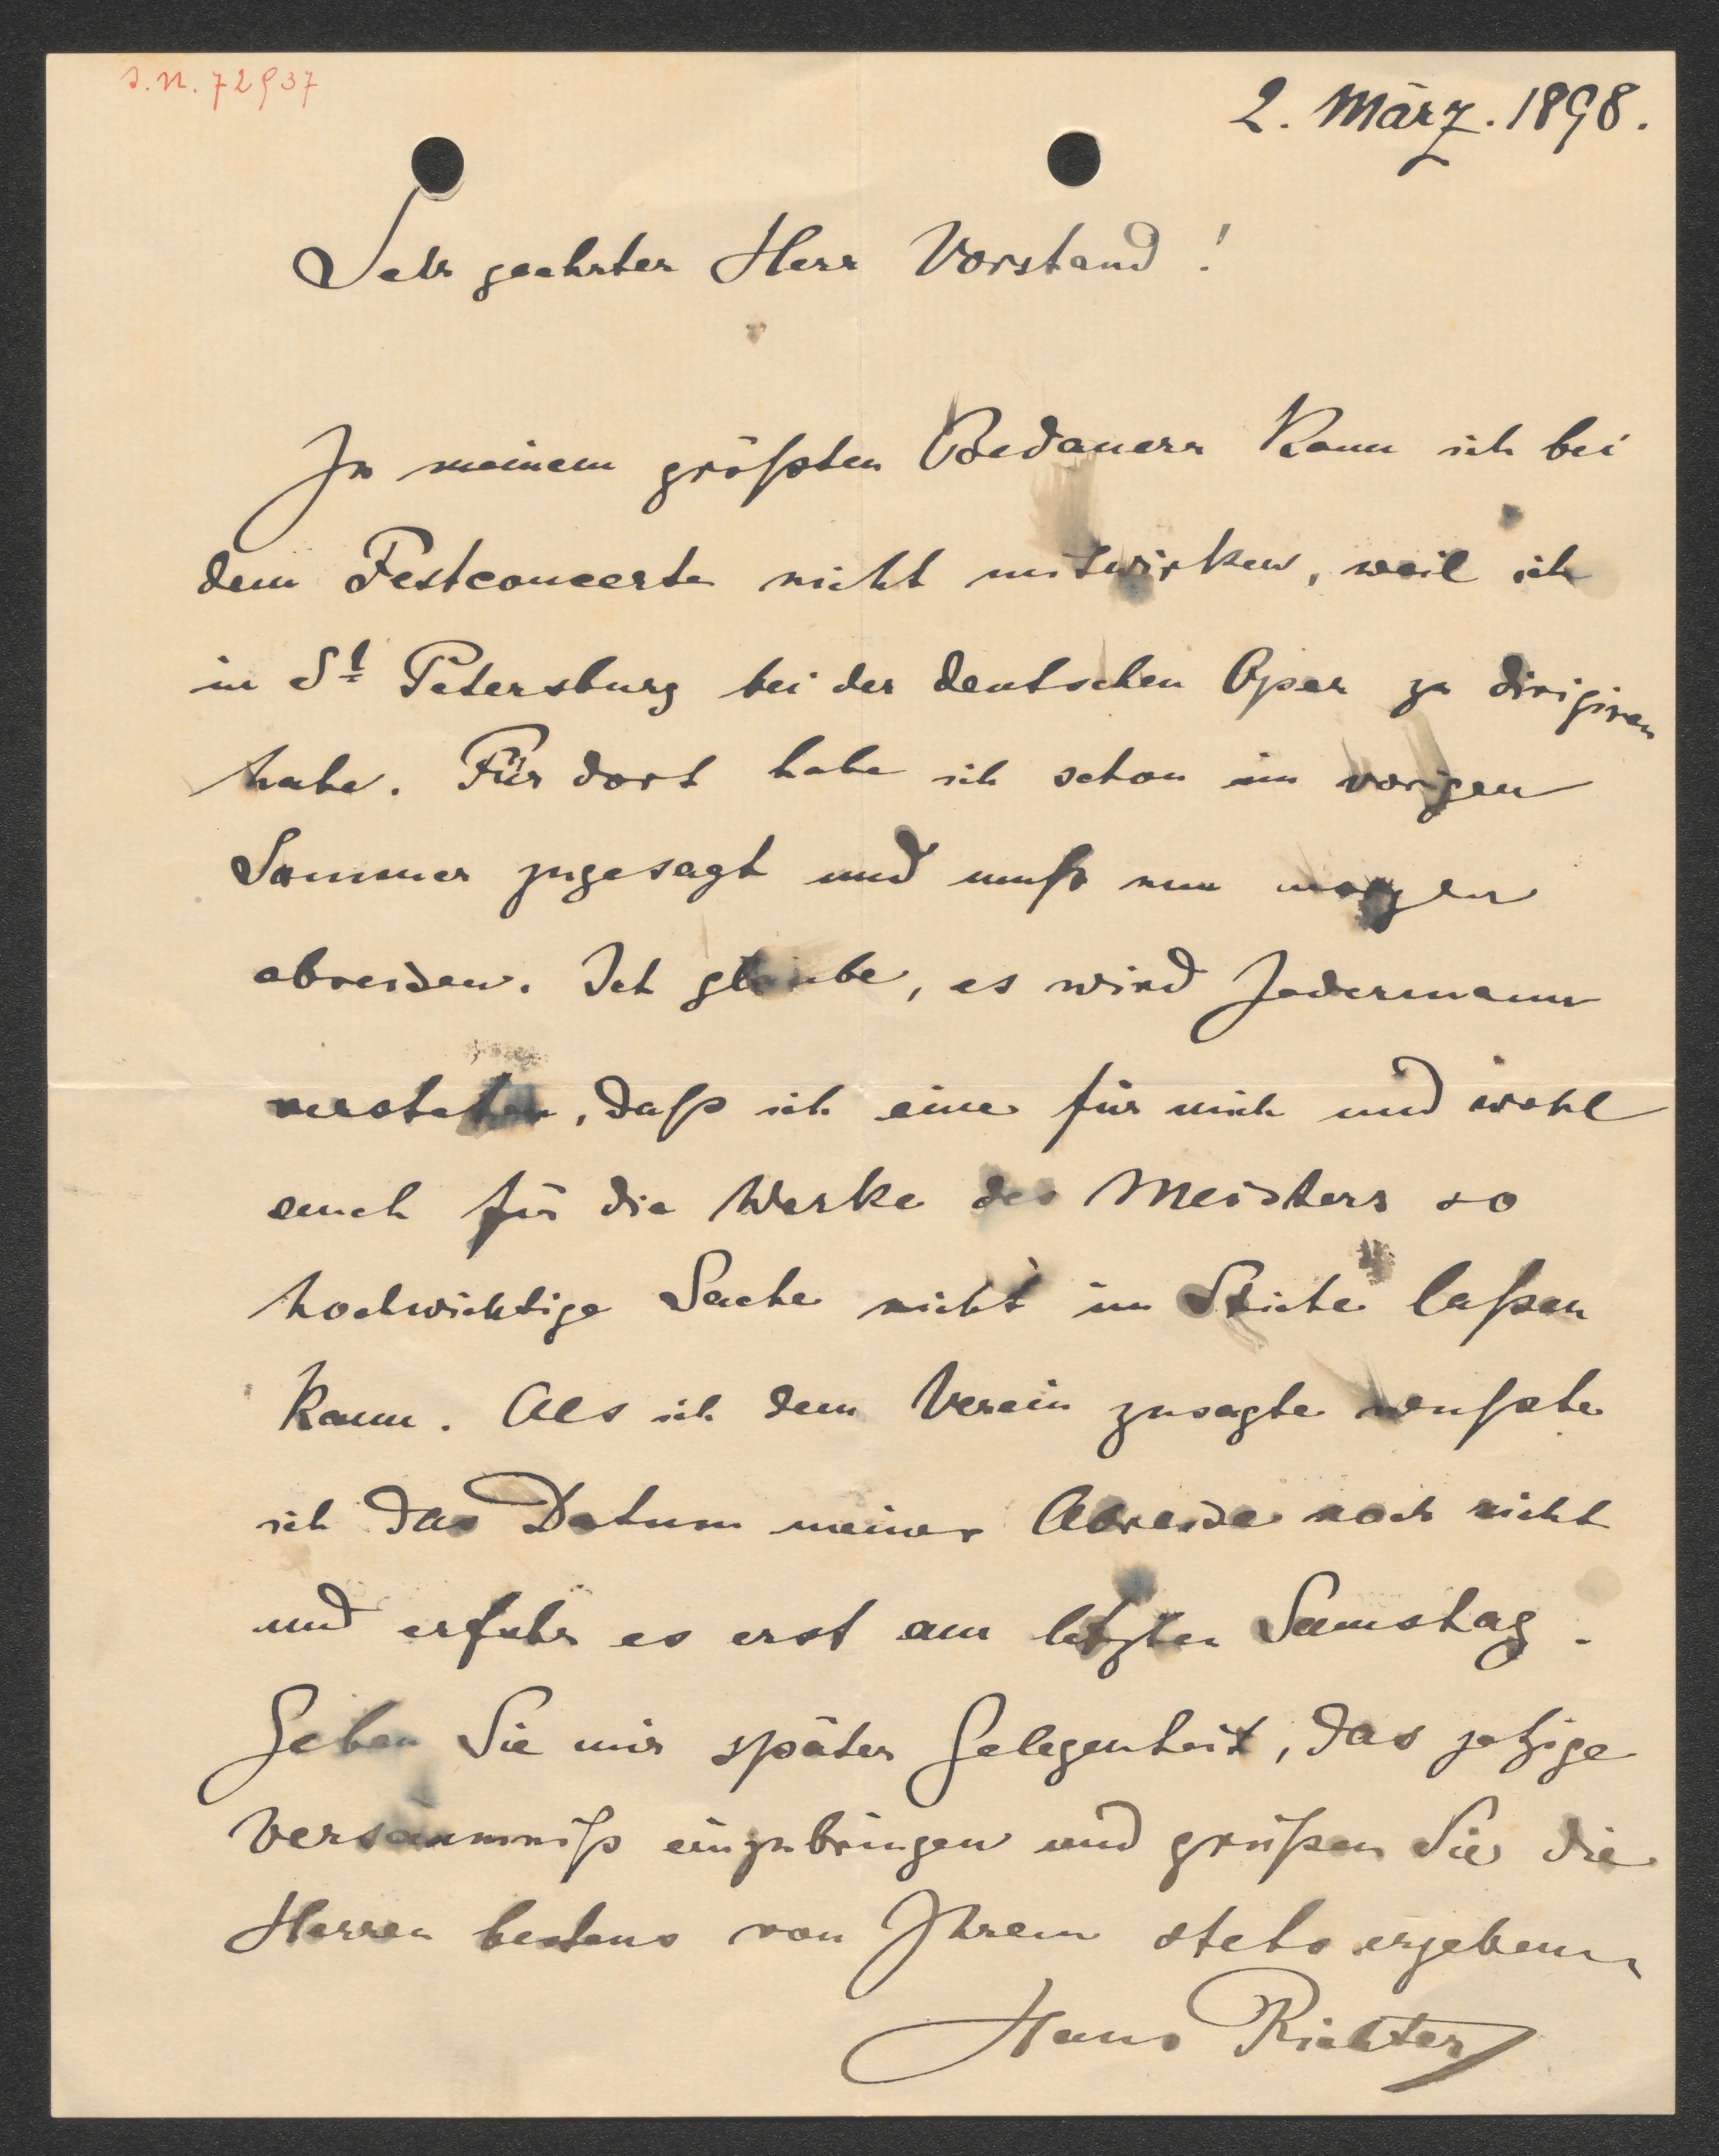 J.N. 72937
2. März. 1898.
Sehr geehrter Herr Vorstand!
Zu meinem größten Bedauern kann ich bei
dem Festconcerte nicht mitwirken, weil ich
in St Petersburg bei der deutschen Oper zu dirigiren
habe. Für dort habe ich schon im vorigen
Sommer zugesagt und muß nun morgen
abreisen. Ich glaube, es wird Jedermann
verstehen, daß ich eine für mich und wohl
auch für die Werke des Meisters so
hochwichtige Sache nicht im Stiche laßen
kann. Als ich dem Verein zusagte wußte
ich das Datum meiner Abreise noch nicht
und erfuhr es erst am letzten Samstag.
Geben Sie mir später Gelegenheit, das jetzige
Versäumniß einzubringen und grüßen Sie die
Herren bestens von Ihrem stets ergebenen
Hans Richter